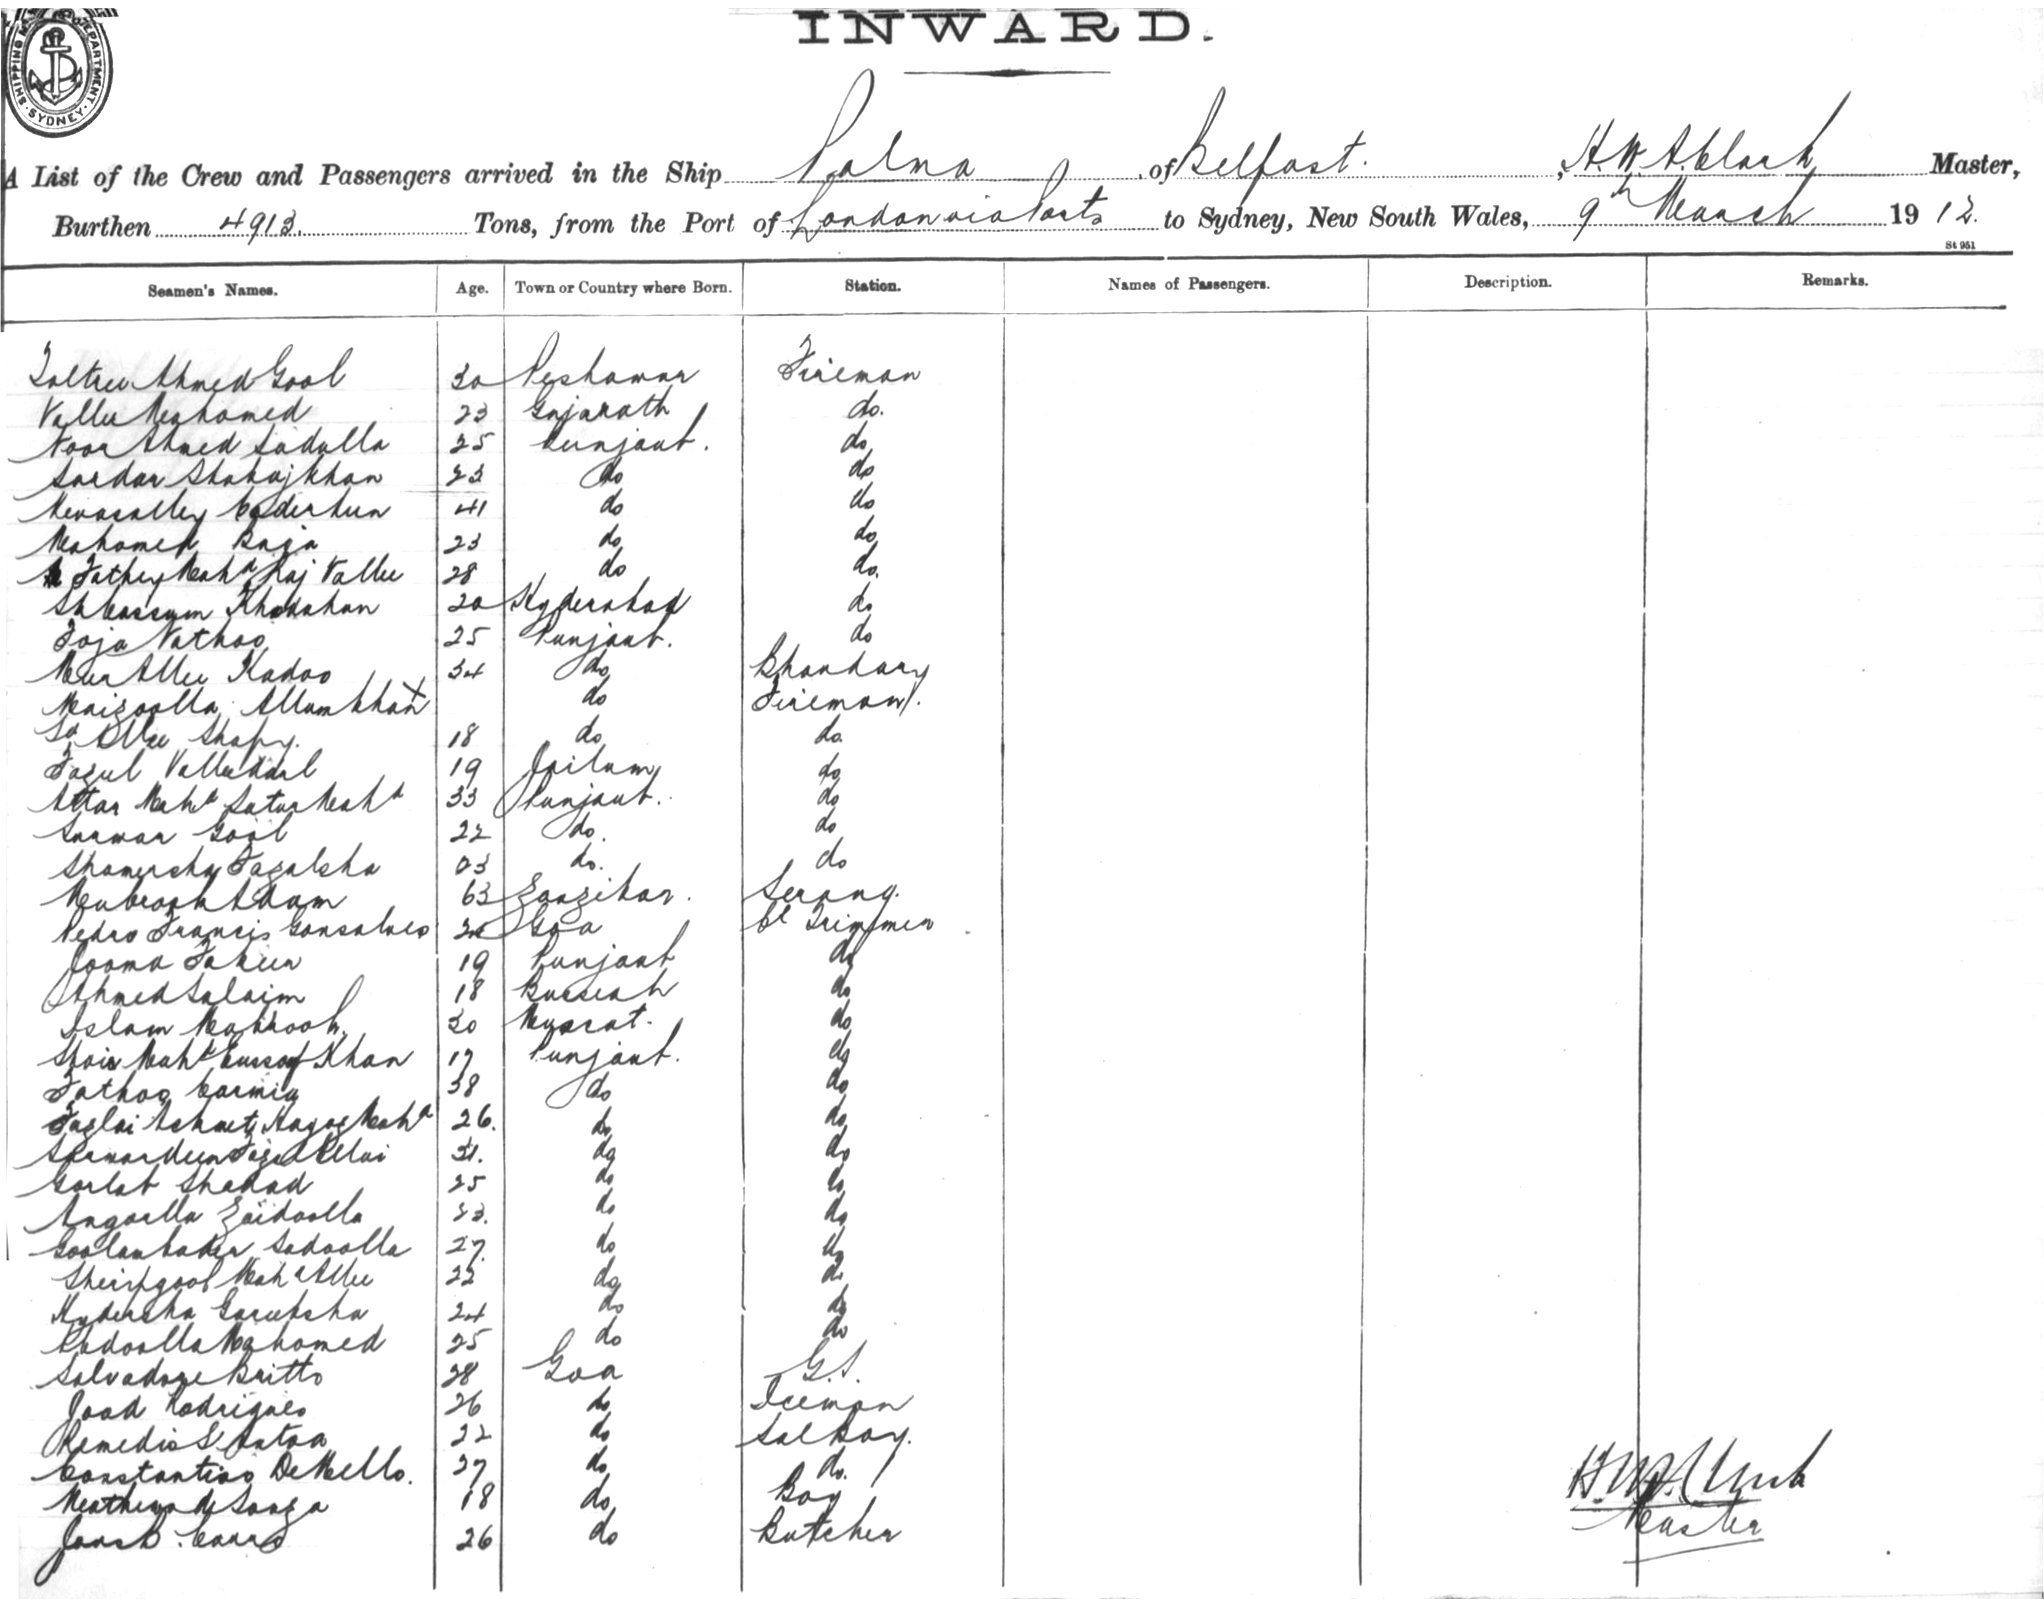 SHIPPING MASTER'S DEPARTMENT · SYDNEY ·
INWARD.
A List of the Crew and Passengers arrived in the Ship Palma of Belfast. , H. W. A. Clark Master,
Burthen 4913. Tons, from the Port of London via Ports to Sydney, New South Wales, 9th March 1912.
St 951
Seamen's Names. Age. Town or Country where Born. Station. Names of Passengers. Description. Remarks.
Ahmed Gool 30 Peshawar Fireman
Vallee Mahomed 23 Gujarath do.
Noor Ahmed Sadulla 25 Punjaub. do
Sardar Shahajkhan 23 do do
41 do do
Mahomed Raja 23 do do
Fathey Mahd Raj Vallee 28 do do.
Khodahan 20 Hyderabad do
Foja Nathoo 25 Punjaub. do
Meer Allee Kadoo 34 do Bhandary
Maizoolla Allumkhan X do Fireman.
Sd Allee Shafy. 18 do do
Fazul 19 do
Attar Mahd Satur Mahd 33 Punjaub. do
Surwar Gool 22 do. do
Shamersha Fazalsha 23 do. do
Mubrook Adam 63 Zanzibar. Serang.
Pedro Francis Gonsalves Goa Cl Trimmer
Jooma Fakeer 19 Punjaub do
Ahmed Salaim 18 Busseah do
Islam Mabrook 30 Muscat. do
Mahd Eussoof Khan 17 Punjaub. do
Fathoo Carmia 38 do do
Fazlai Achmet Mahd 26. do do
31. do do
Gorlab Shadad 25 do do
Angoolla Zaidoolla 23. do do
Goolamkader Sadoolla 27. do do
Sherifgool Mahd Allee 22 do do
Hydersha Garibsha 24 do do
Abdoolla Mahomed 25 do do
Salvadore Britto 28 Goa G.S.
Joao Rodrigues 26 do Iceman
Remedio S. Antao 22 do Sal Boy.
Constantino De Mello. 27 do do.
de Souza 18 do Boy
26 do Butcher
H. W. A. Clark
Master